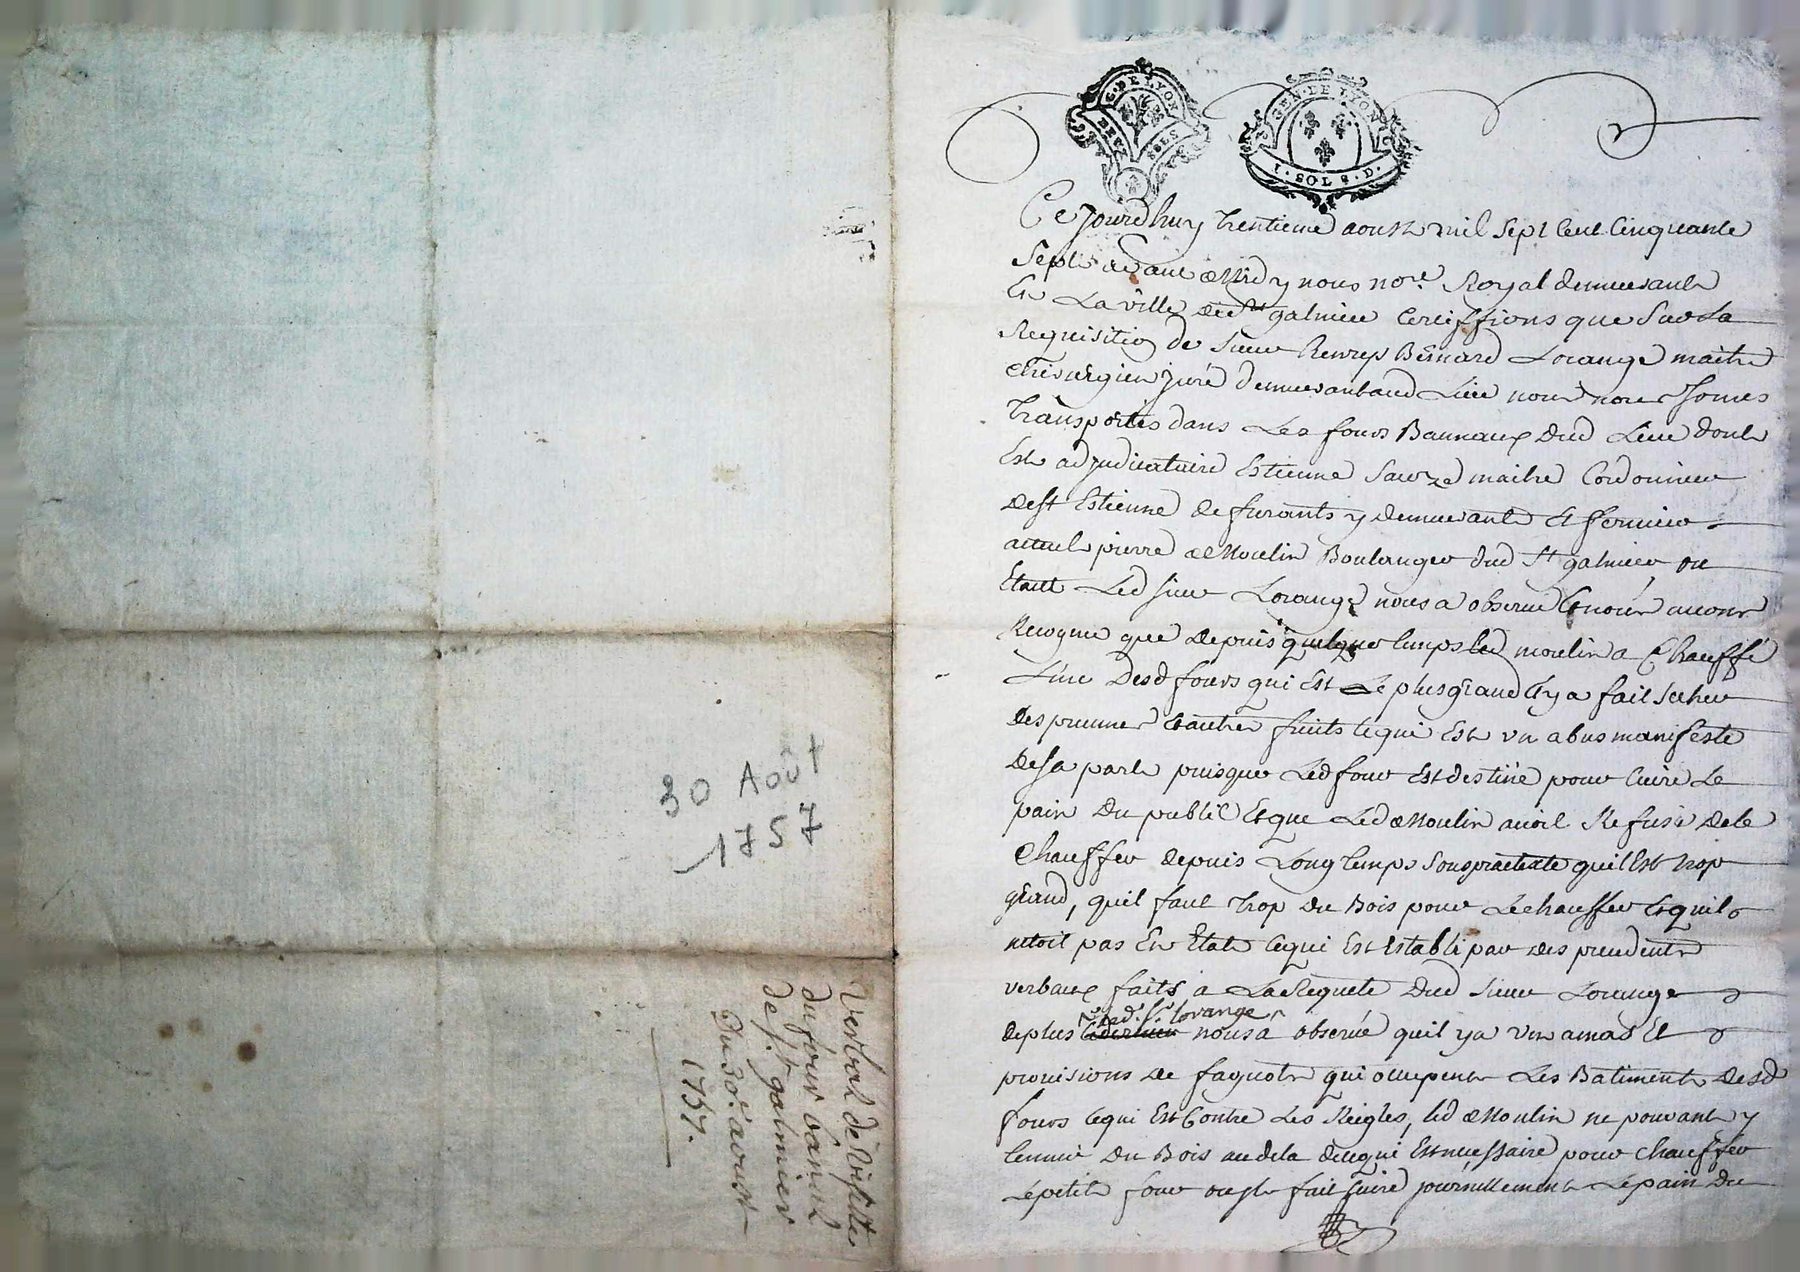 G. DE LYON
GEN. DE LYON
1. SOLS. D.
Ce Jourdhuy trentieme aoust mil sept Cent Cinquante
Sept avant Midy nous nore. Royal demeurant
En La ville de St galmier Certiffions que Sur La
Requisition de Sieur henrys Bernard Lorange maitre
chirurgien juré demeurant aud Lieu nous nous Somes
transportés dans Les fours Bannaux dud Lieu dont
Est adjudicataire Estienne Sauze maitre Cordonnier
de St Estienne de furants y demeurant Et fermier
actuel pierre Moulin Boulanger dud St galmier ou
Etant Led Sieur Lorange nous a observé Et nous avons
Recognu que depuis quelque temps led moulin a Chauffé
L'un desd fours qui Est Le plus grand Et y a fait Secher
des prunes Et autres fruits ce qui Est un abus manifeste
de Sa part puisque Led four Est destiné pour Cuire Le
pain du public Et que Led Moulin avoit Refusé de le
Chauffer depuis Longtemps Sous praetexte quil Est trop
grand, quil faut trop du Bois pour Le chauffer Et quil
netoit pas En Etat ce qui Est Establi par des precedents
verbaux faits a La Requete dud Sieur Lorange
Led. Sr. lorange
de plus nous a observé quil y a un amas Et
provisions de fagnots qui occupent Les Batiments desd
fours ce qui Est Contre Les Reigles, led Moulin ne pouvant y
tenir du Bois au dela de ce qui Est necessaire pour chauffer
Le petit four ou Il fait Cuire journellement Le pain du
30 Août
1757
Verbal de visitte
du four banal
de St. galmier
Du 30e. aoust
1757.